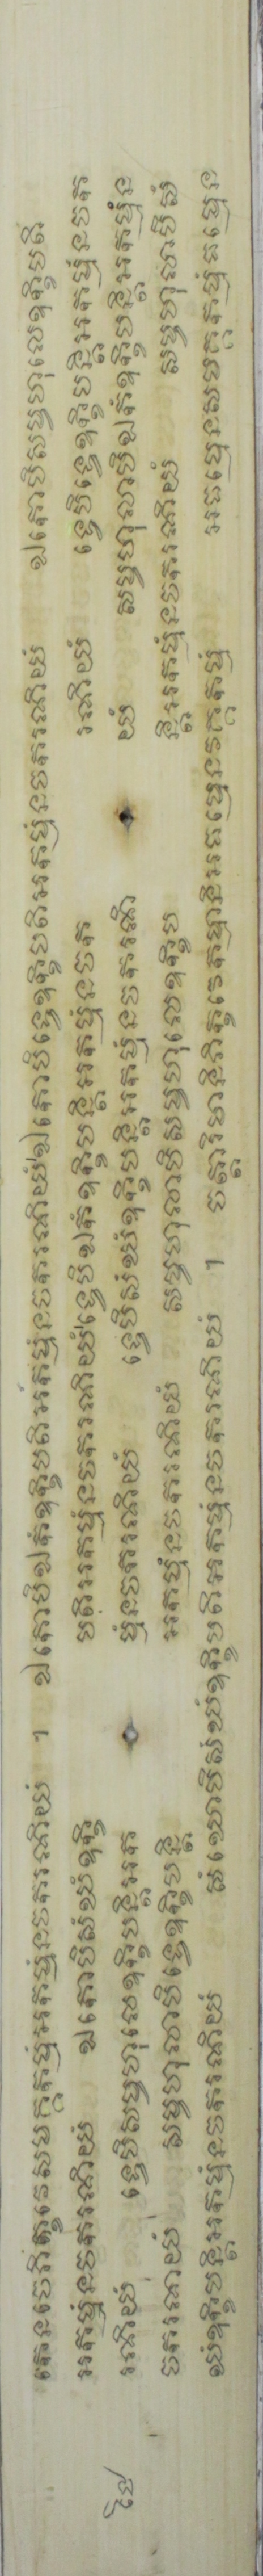 តេនចេភិក្ខវេសមគ្គកម្មំអកម្មំនចករណីយំ ។ ឯកោបិឯកំឧក្ខិបតិអកម្មំនចករណីយំ ឯកោបិទ្វេឧក្ខិបតិអកម្មំនចករណីយំ ឯកោបិសម្ពហុលេឧក្ខិបតិ
អកម្មំនចករណីយំ ឯកោបិសំឃំឧក្ខិ បតិអកម្មំនចករណីយំ ទ្វេបិឯកំឧក្ខិបន្តិអកម្មំនចក រណីយំ ទ្វេបិទ្វេឧក្ខិបន្តិអកម្មំនចក
រណីយំ ទ្វេបិសម្ពហុលេឧក្ខិបន្តិអក ម្មំនចករណីយំ ទ្វេបិសំឃំឧក្ខិបន្តិអកម្មំនចករណី យំ សម្ពហុលាបិឯកំឧក្ខិបន្តិអកម្មំន
ចករណយំ សម្ពហុលាបិទ្វេឧក្ខិបន្តិ អកម្មំនចករណីយំ សម្ពហុលាបិសម្ពហុលេឧក្ខិប ន្តិអកម្មំនចករណីយំ សម្ពហុលាបិសំ
ឃំឧក្ខិបន្តិអកម្មំនចករណីយំ សំឃោបិសំឃំឧក្ខិបតិអកម្មំនចករណីយំ ។ ចត្តារិមានិភិក្ខវេកម្មានិអធម្មេនវគ្គកម្មំ អធម្មេនសមគ្គកម្មំធម្មេន